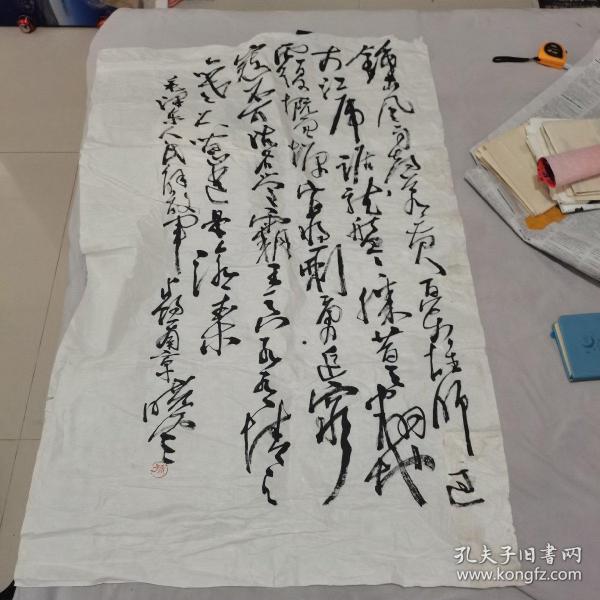 鍾山风雨起苍黄百万雄师过
大江虎踞龙盘今胜昔天翻地
覆慨而慷宜将剩勇追穷
寇不可沽名学霸王天若有情天
亦老人间正道是沧桑
毛泽东人民解放军占领南京
孔夫子旧书网
www.kongfz.com